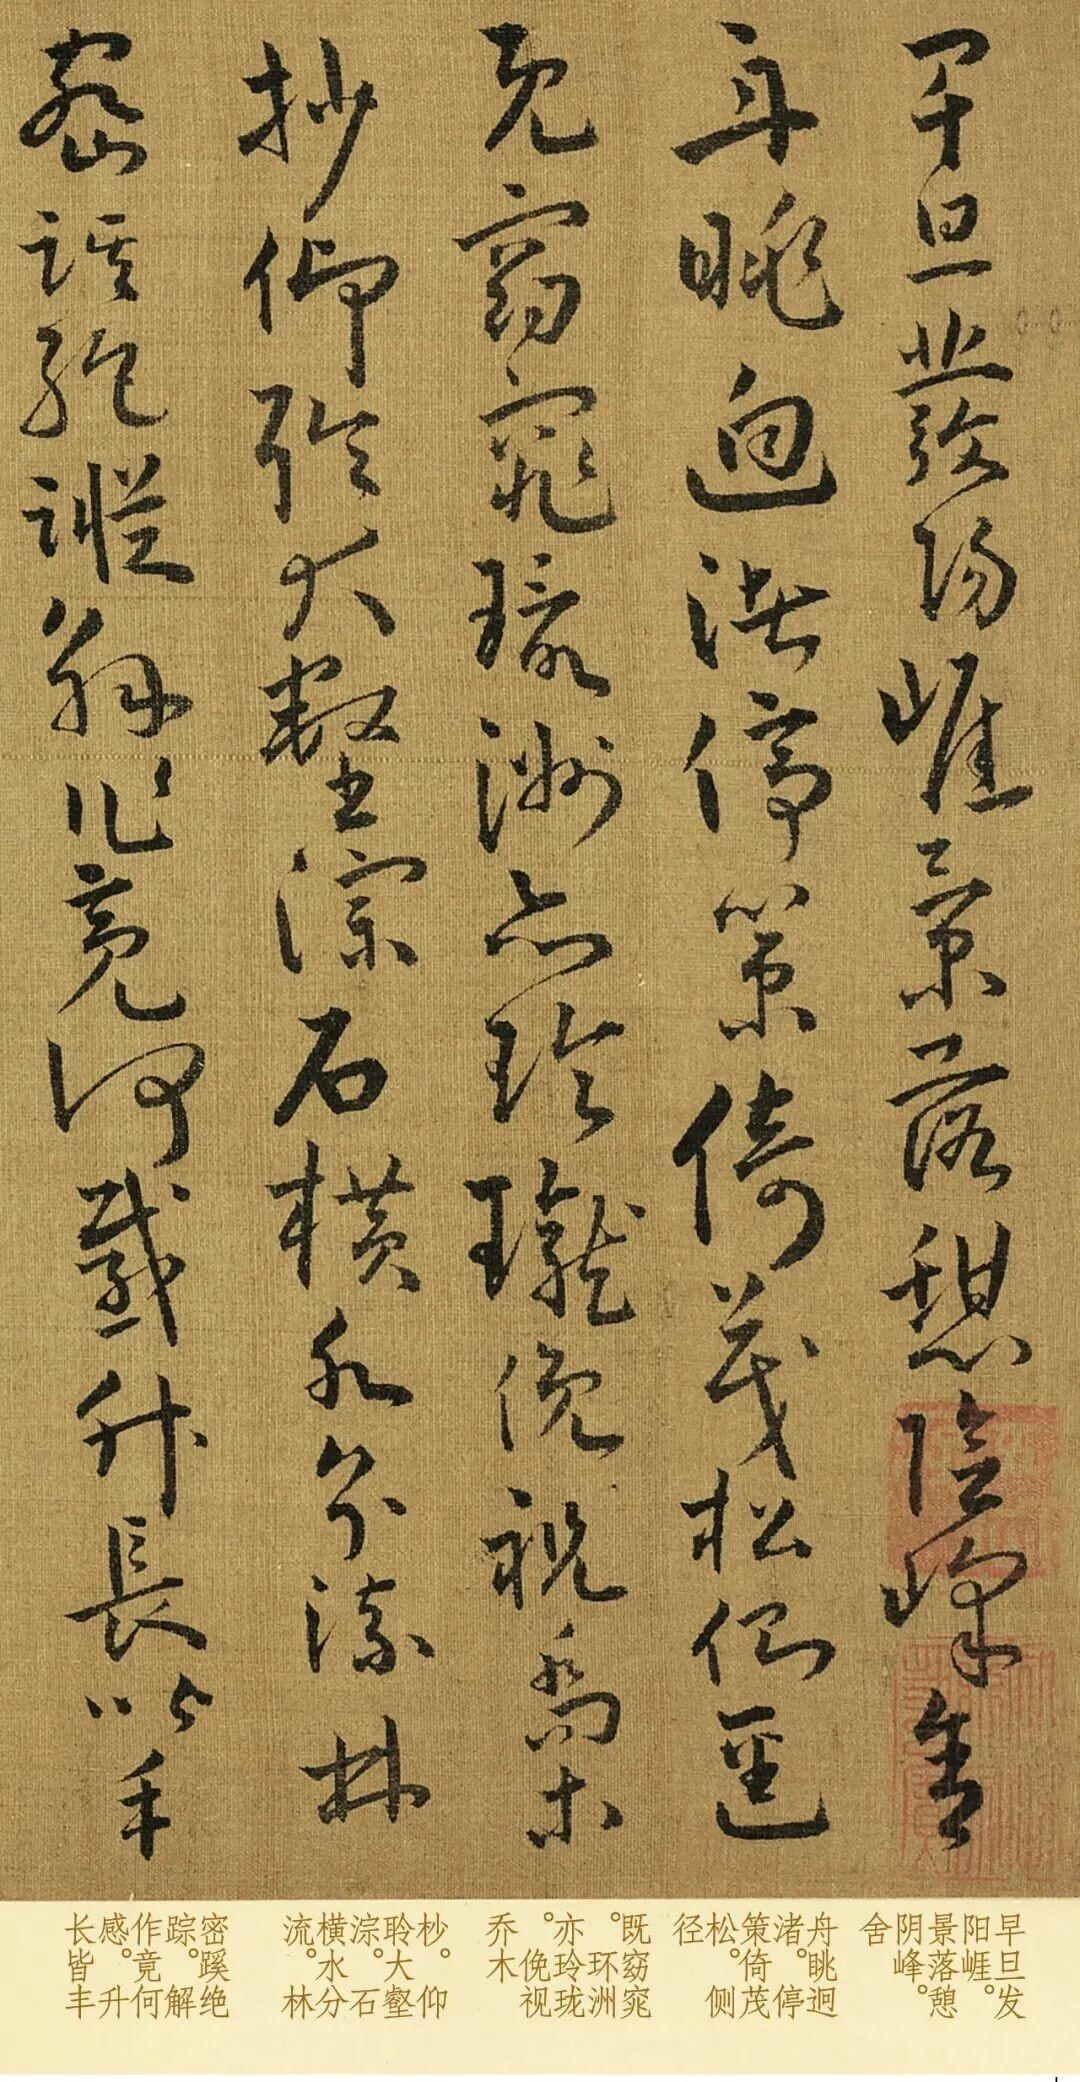 早旦發陽崖景落憩陰峰舍
舟眺迥渚停策倚茂松側逕
既窈窕環洲亦玲瓏俛視喬木
抄仰聆大壑淙石橫水分流林
密蹊絕蹤解作竟何感升長皆丰
早旦发
阳崖。
景落憩
阴峰。
舍
舟眺迥
渚。停
策倚茂
松。侧
径
既窈窕
。环洲
亦玲珑
。俛视
乔木
杪。仰
聆大壑
淙。石
横水分
流。林
密蹊绝
踪。解
作竟何
感。升
长皆丰